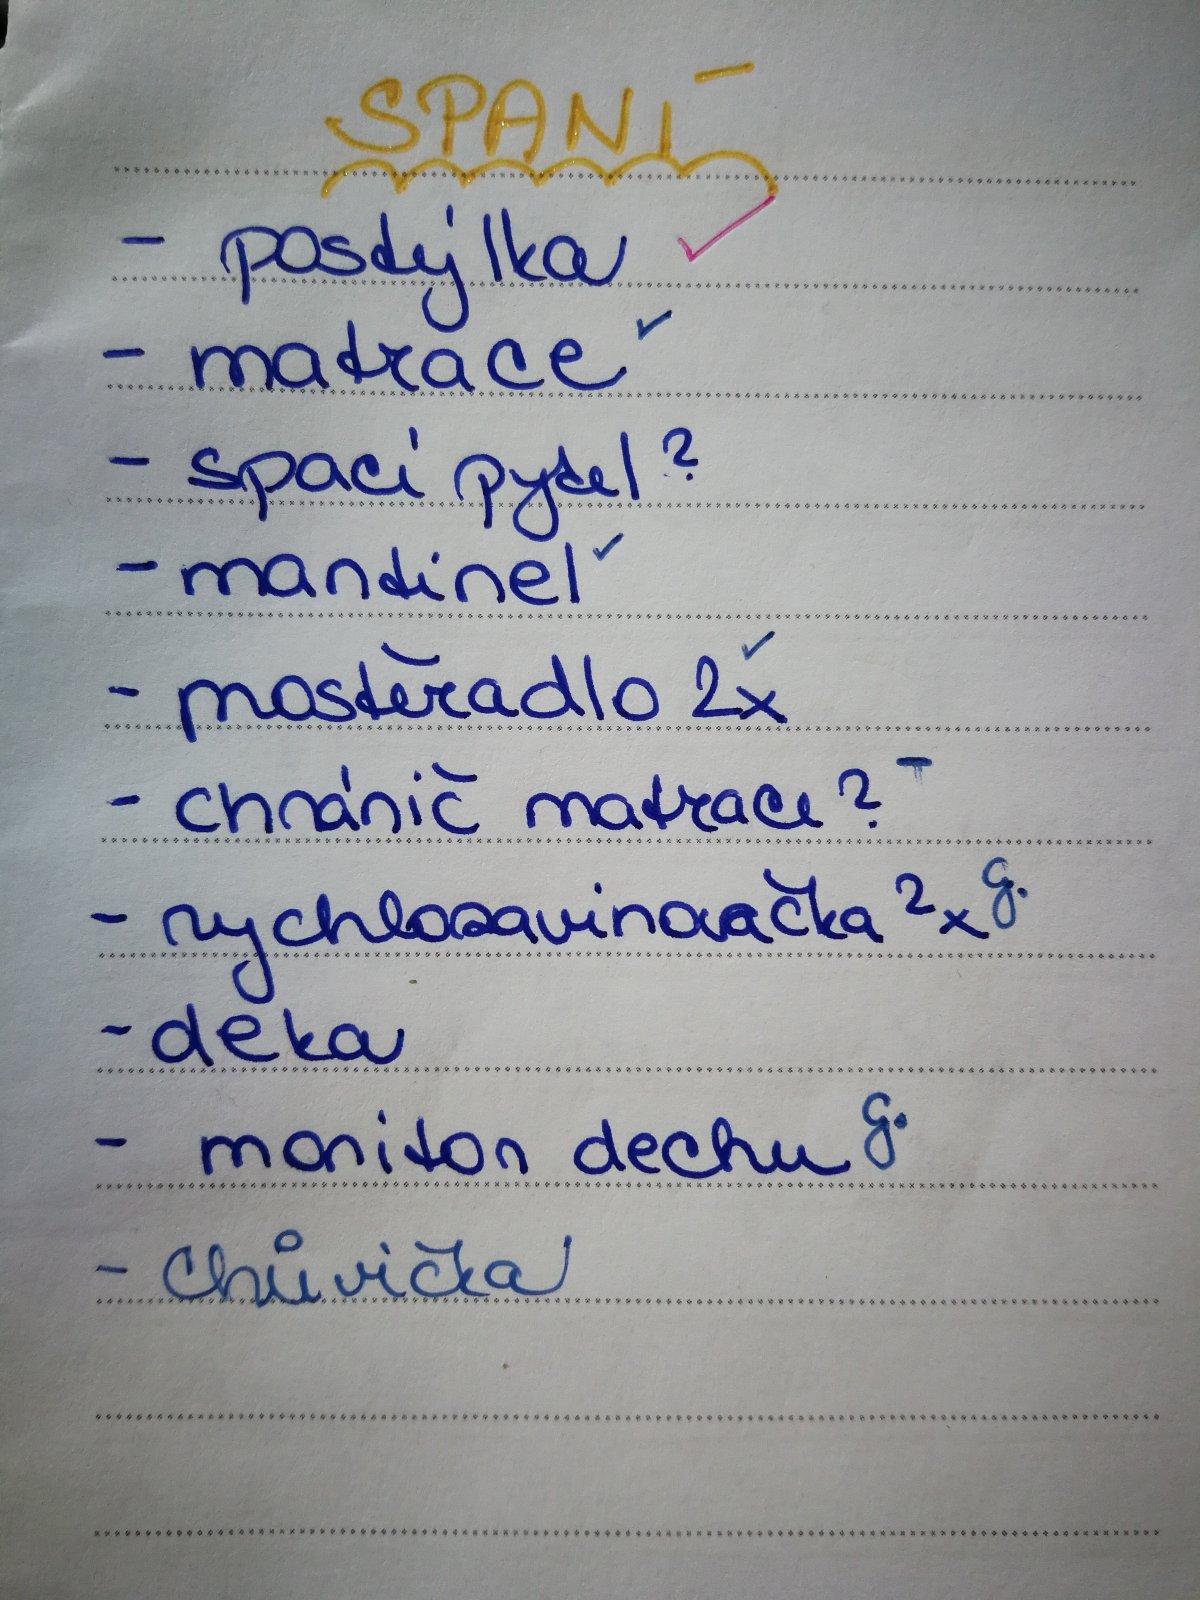 SPANÍ
- postýlka ✓
- matrace ✓
- spací pytel ?
- mantinel ✓
- prostěradlo 2x ✓
- chránič matrace ? T
- rychlozavinovačka 2x G.
- deka
- monitor dechu G.
- chůvička